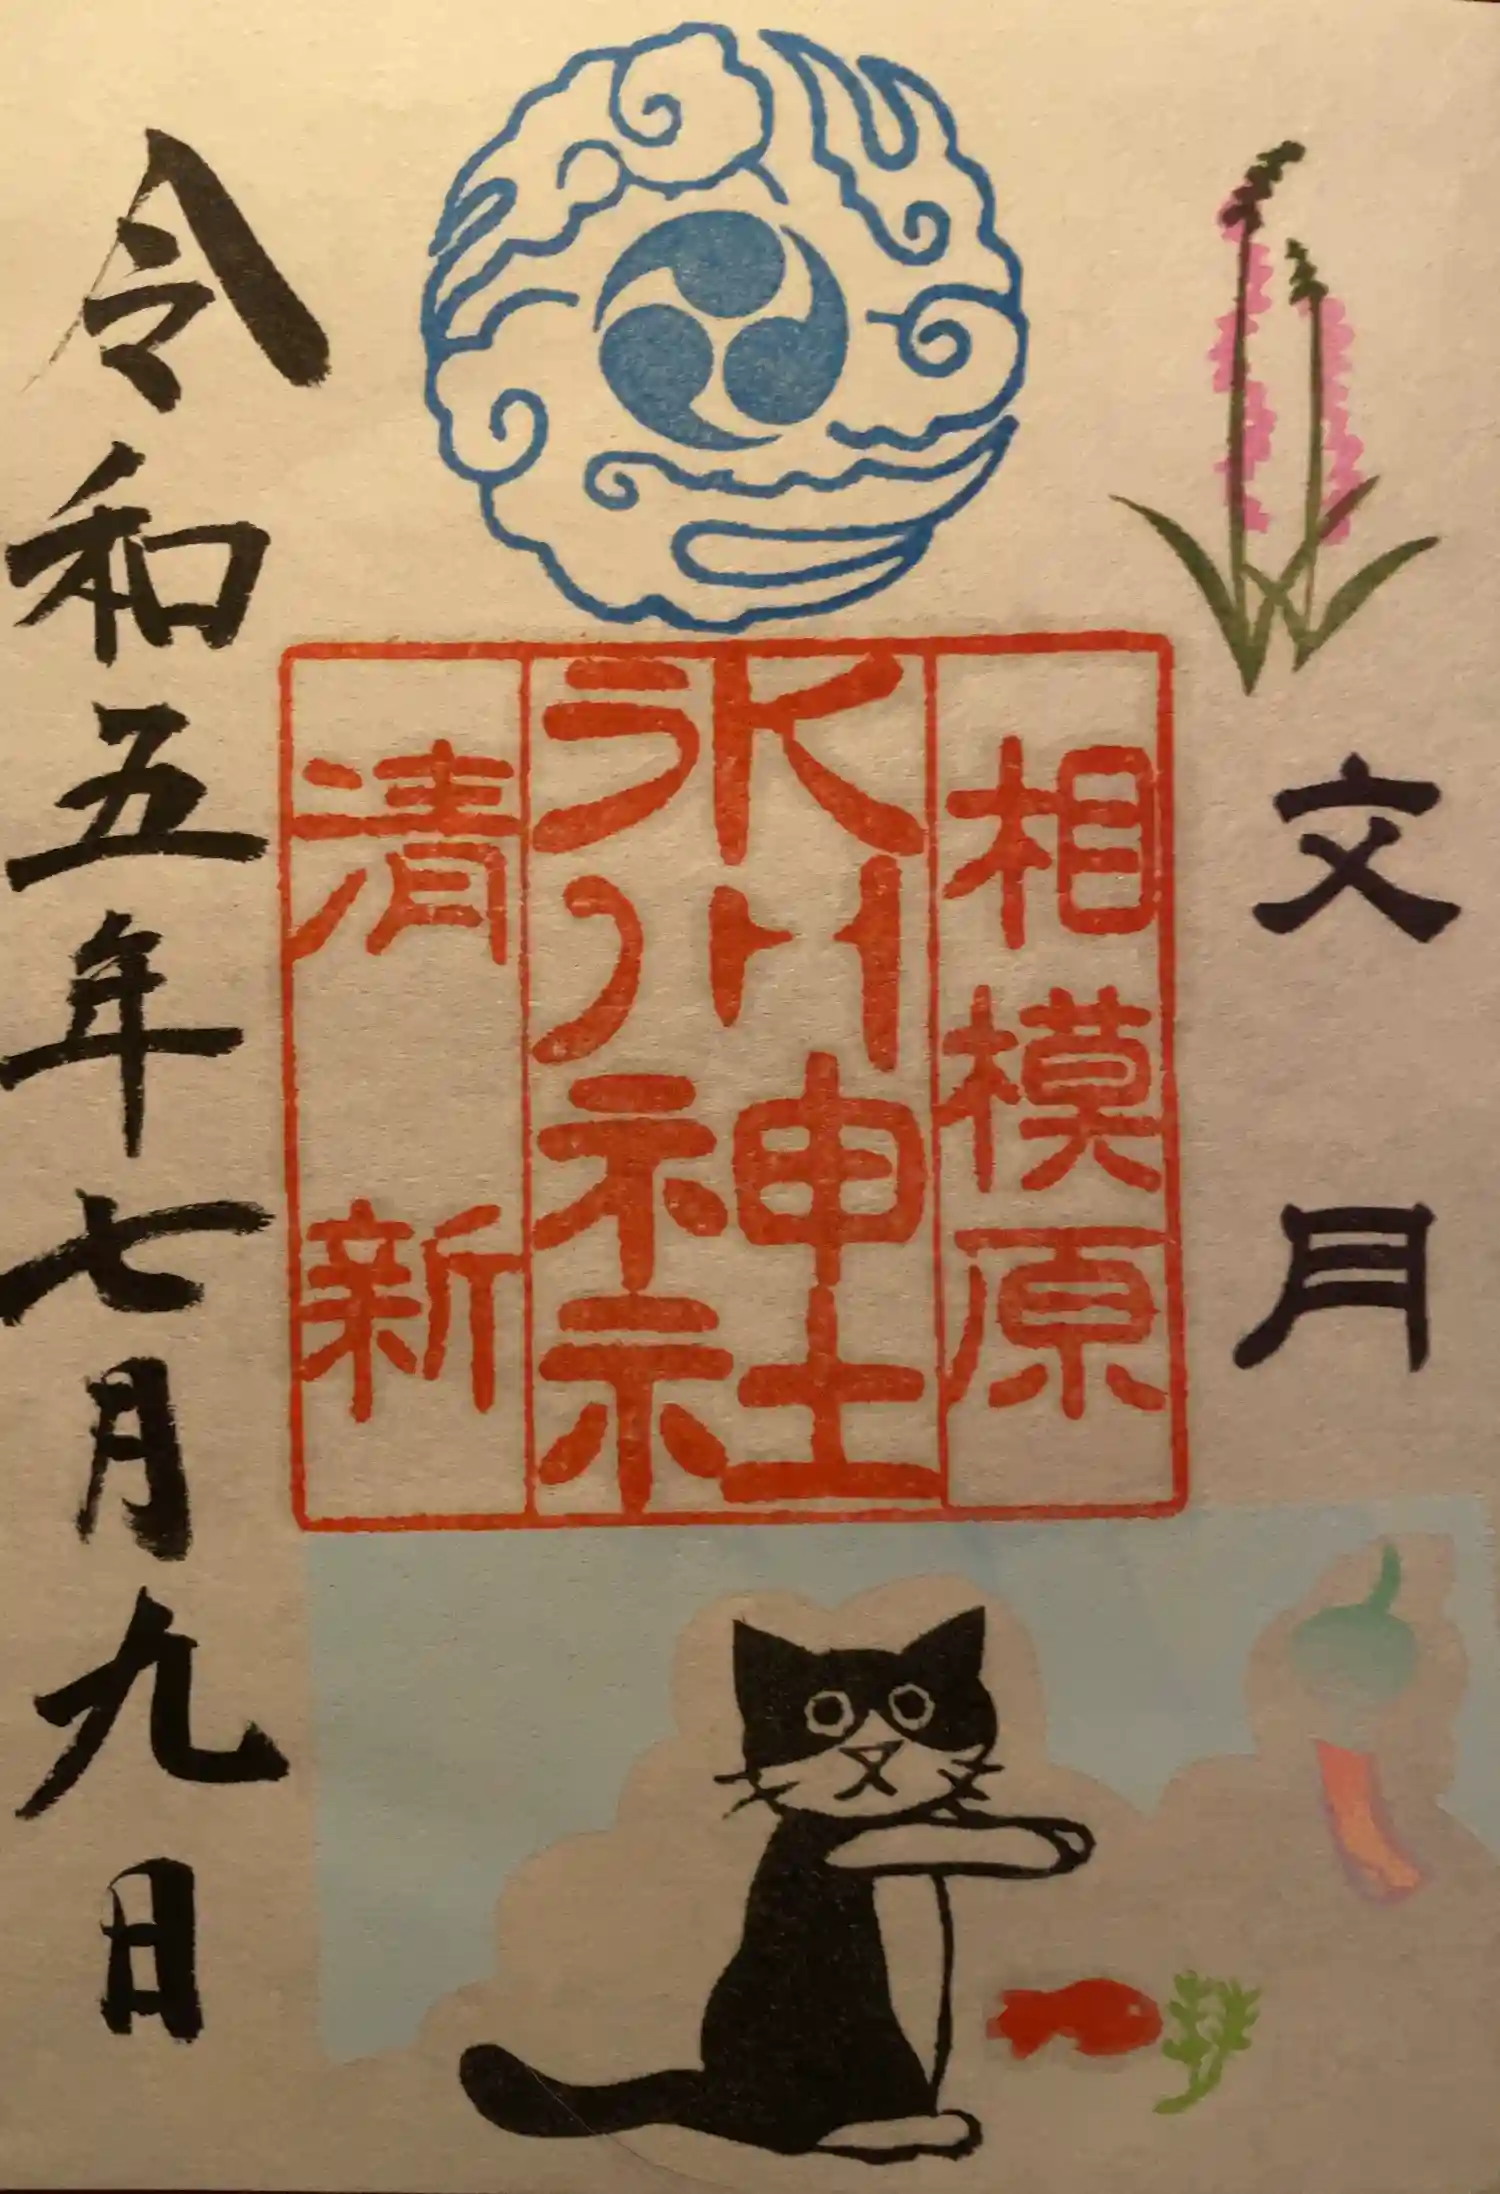 文月
相模原
氷川神社
清新
令和五年七月九日